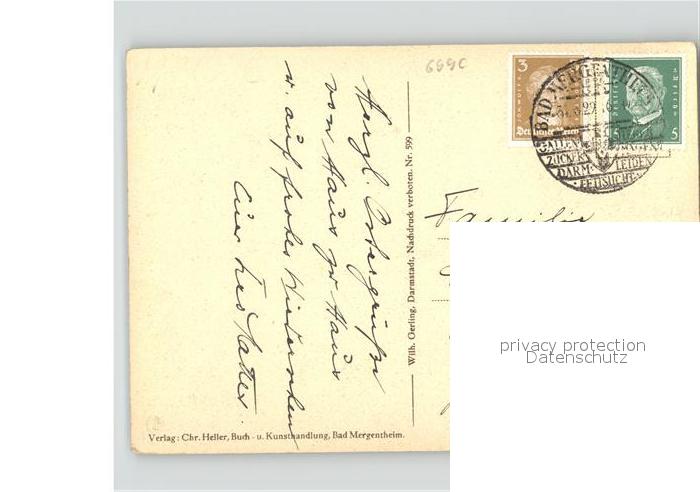 6990
3
Deutsches Reich
5
BAD MERGENTHEIM
GALLEN
ZUCKER
DARM
LEIDEN
FETTSUCHT
Herzl. Ostergrüße
von Haus zu Haus
u. auf frohes Wiedersehen
Euer
Wilh. Gerling, Darmstadt, Nachdruck verboten. Nr. 599
Familie
privacy protection
Datenschutz
Verlag: Chr. Heller, Buch- u. Kunsthandlung, Bad Mergentheim.